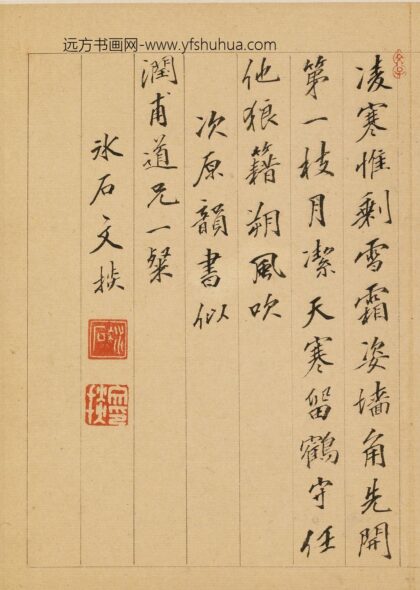 远方书画网-www.yfshuhua.com
凌寒惟剩雪霜姿墙角先開
第一枝月潔天寒留鶴守任
他狼籍朔風吹
次原韻書似
潤甫道兄一粲
冰石文掞